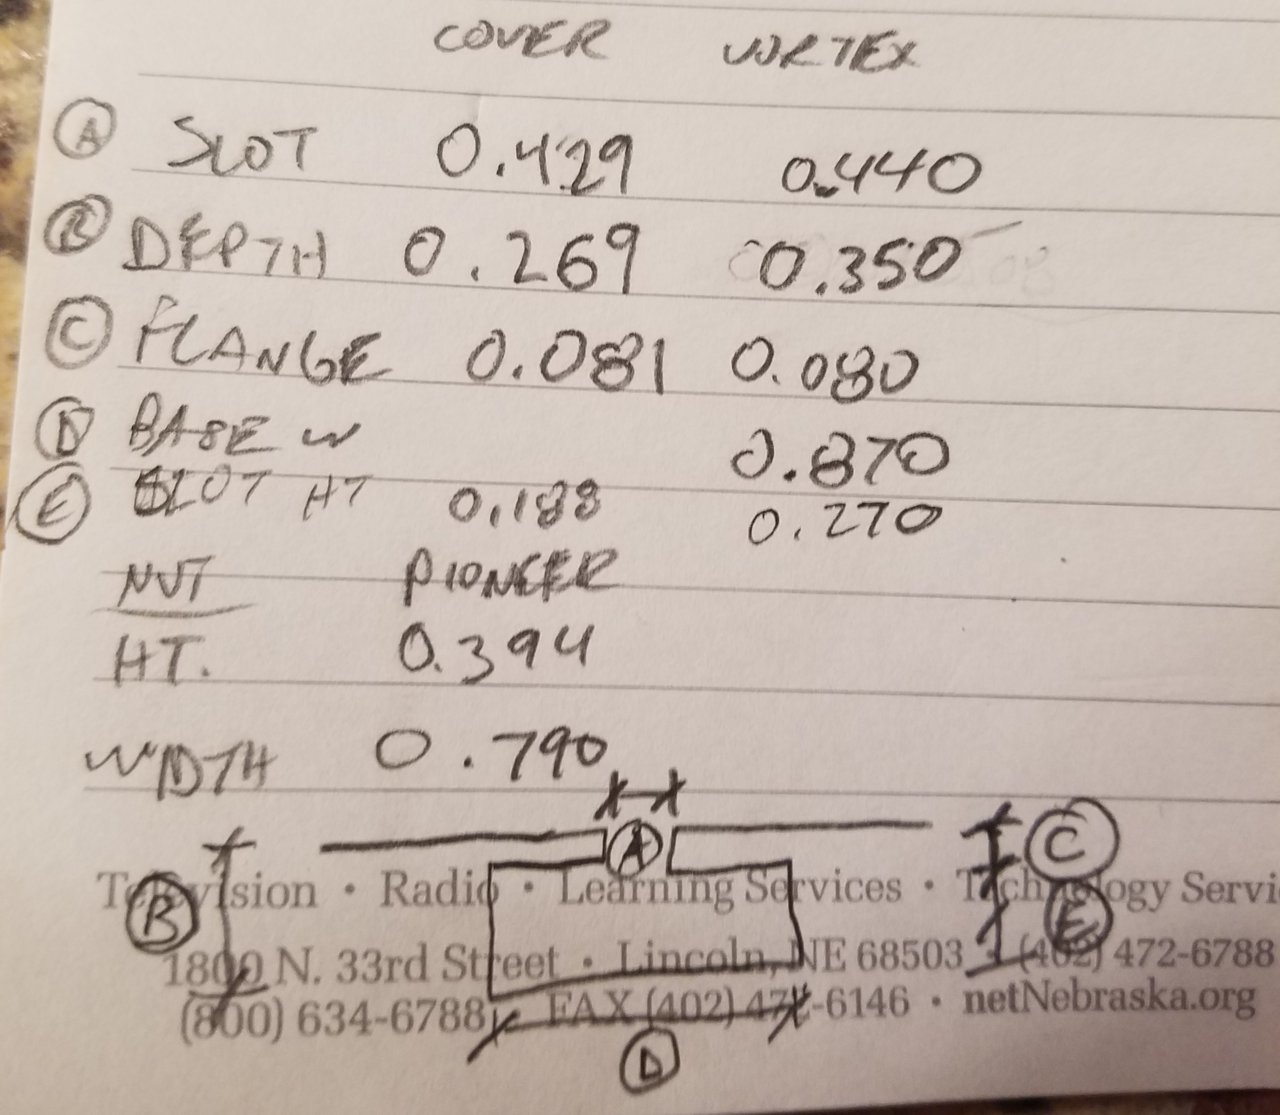 COVER VORTEX
Ⓐ SLOT 0.429 0.440
Ⓑ DEPTH 0.269 0.350
Ⓒ FLANGE 0.081 0.080
Ⓓ BASE W 0.870
Ⓔ SLOT HT 0.188 0.270
NUT PIONEER
HT. 0.394
WIDTH 0.790
Ⓐ Ⓒ
Television • Radio • Learning Services • Technology Servi
Ⓑ Ⓔ
1800 N. 33rd Street • Lincoln, NE 68503 • (402) 472-6788
(800) 634-6788 • FAX (402) 472-6146 • netNebraska.org
Ⓓ